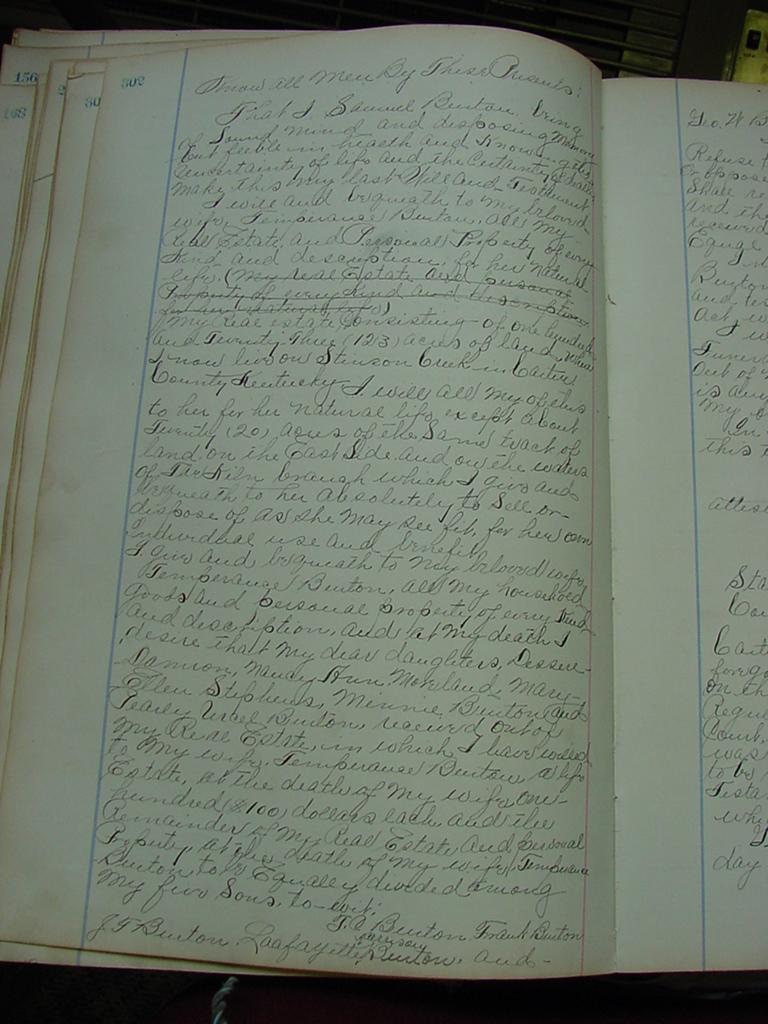 156
168
30
302
Know all Men By These Presents:
That I, Samuel Burton, being
of Sound mind and disposing Memory
but feeble in health and Knowing the
uncertainty of life and the Certainty of death
Make this my last Will and Testament
I will and bequeath to my beloved
wife, Temperance Burton, all my
Real Estate, and Personal Property of every
Kind and description, for her Natural
life. (My real Estate and personal
Property of every Kind and description
for her natural life)
My real estate Consisting of one hundred
and Twenty-Three (123) acres of land, where
I now live on Stinson Creek in Carter
County Kentucky. I will all my of this
to her for her natural life, except about
Twenty (20) acres of the Same tract of
land on the East Side and on the waters
of Tar Kiln branch which I give and
bequeath to her absolutely to Sell or
dispose of as she May see fit, for her own
individual use and benefit.
I give and bequeath to My beloved wife,
Temperance Burton, all My household
goods and personal property of every Kind
and description, and at My death I
desire that My dear daughters,
Damron, Nancy Ann Moreland, Mary
Ellen Stephens, Minnie Burton and
Pearly Burton, received out of
My Real Estate, in which I have willed
to My wife, Temperance Burton, a life
Estate, at the death of My wife, one
hundred ($100) dollars each, and the
Remainder of My Real Estate and personal
Property, at the death of My wife, Temperance
Burton, to be Equally divided among
My five Sons, to-wit:
Burton, Frank Burton
J.T. Burton, Laafayette Burton, and
Geo. W B
Refuse
or oppose
Shall re
and the
received
I
Burton
and tes
act w
I w
Funer
out of
is
My
In
this
attes
Sta
Cou
Cart
forego
on th
Regul
Court
was
to be
Testa
whi
day